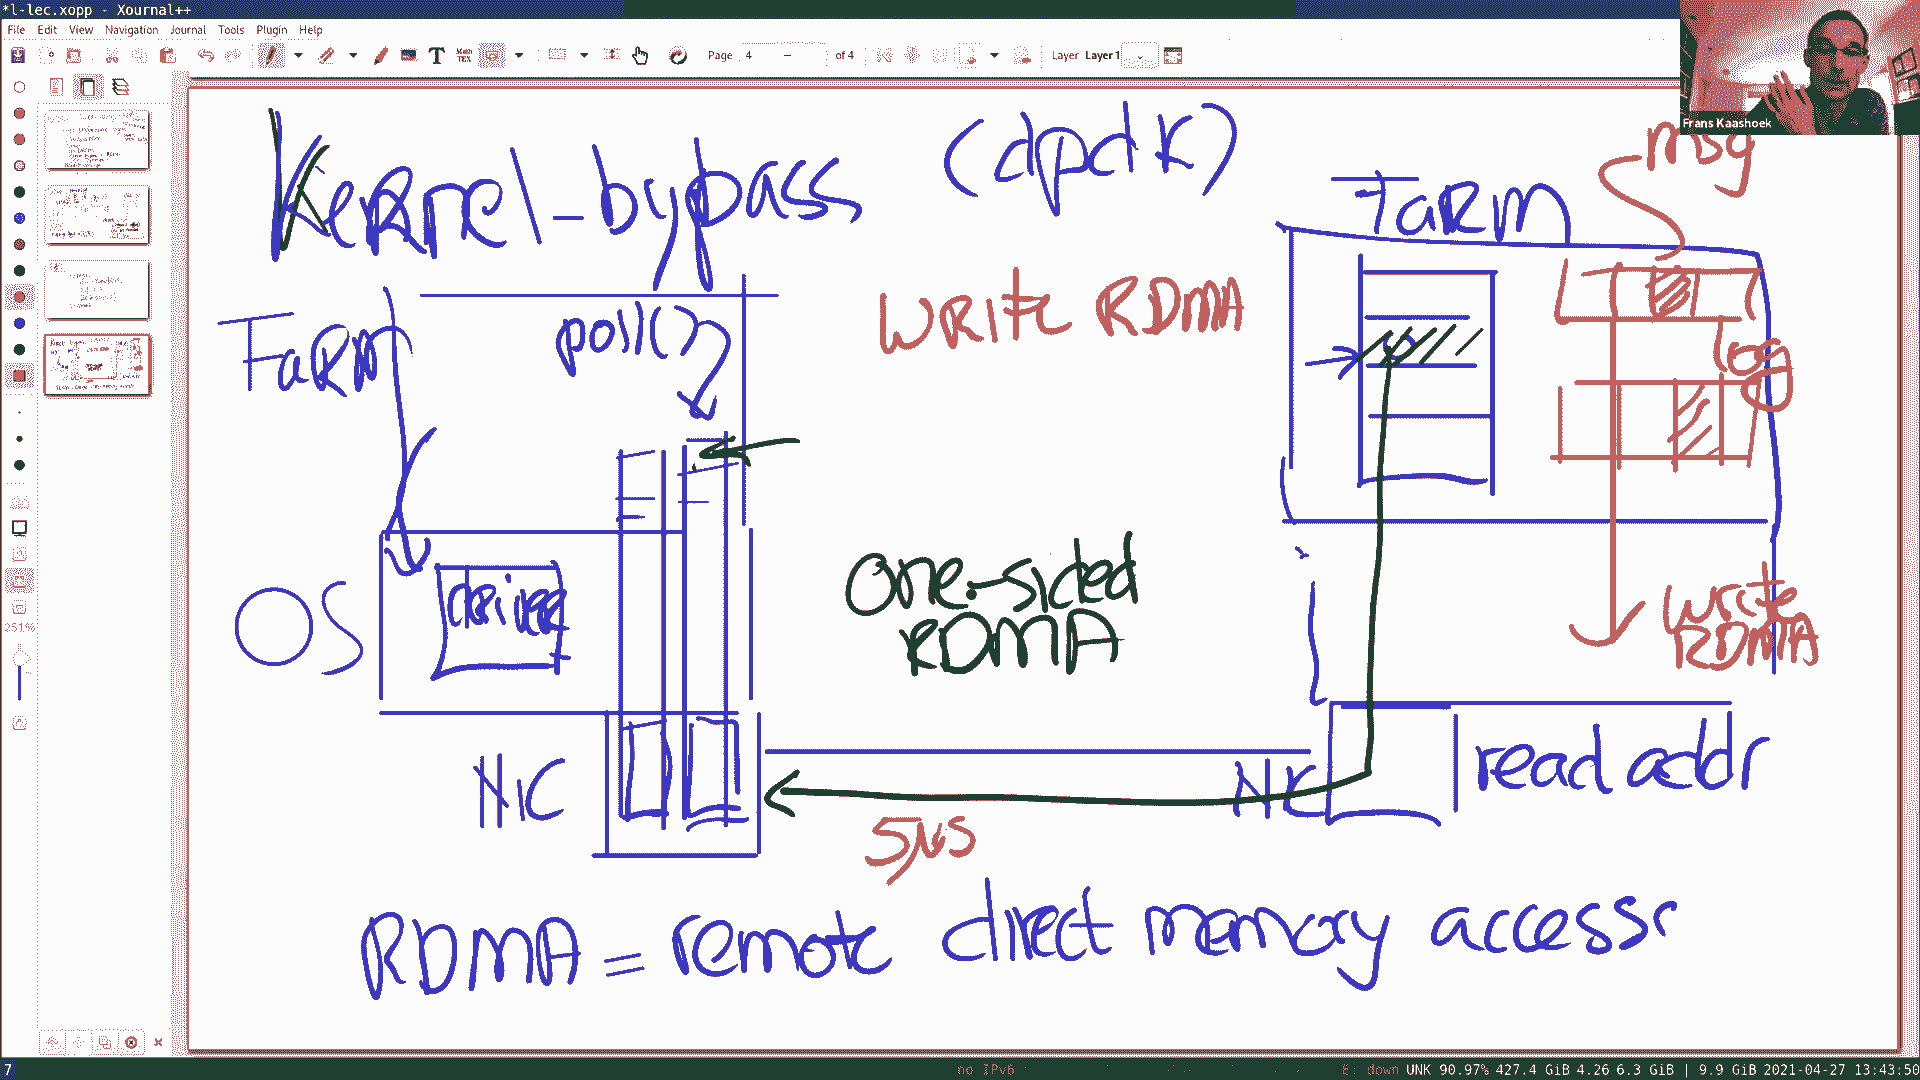 *l-lec.xopp - Xournal++
File Edit View Navigation Journal Tools Plugin Help
Page 4 of 4 Layer Layer1
Frans Kaashoek
Kernel-bypass (dpdk)
msg
FaRM
FaRM
poll()
write RDMA
log
OS
driver
one-sided
RDMA
write
RDMA
NIC
NIC
read addr
5μs
RDMA = remote direct memory access
251%
7
no IPv6
E: down UNK 90.97% 427.4 GiB 4.26 6.3 GiB | 9.9 GiB 2021-04-27 13:43:50